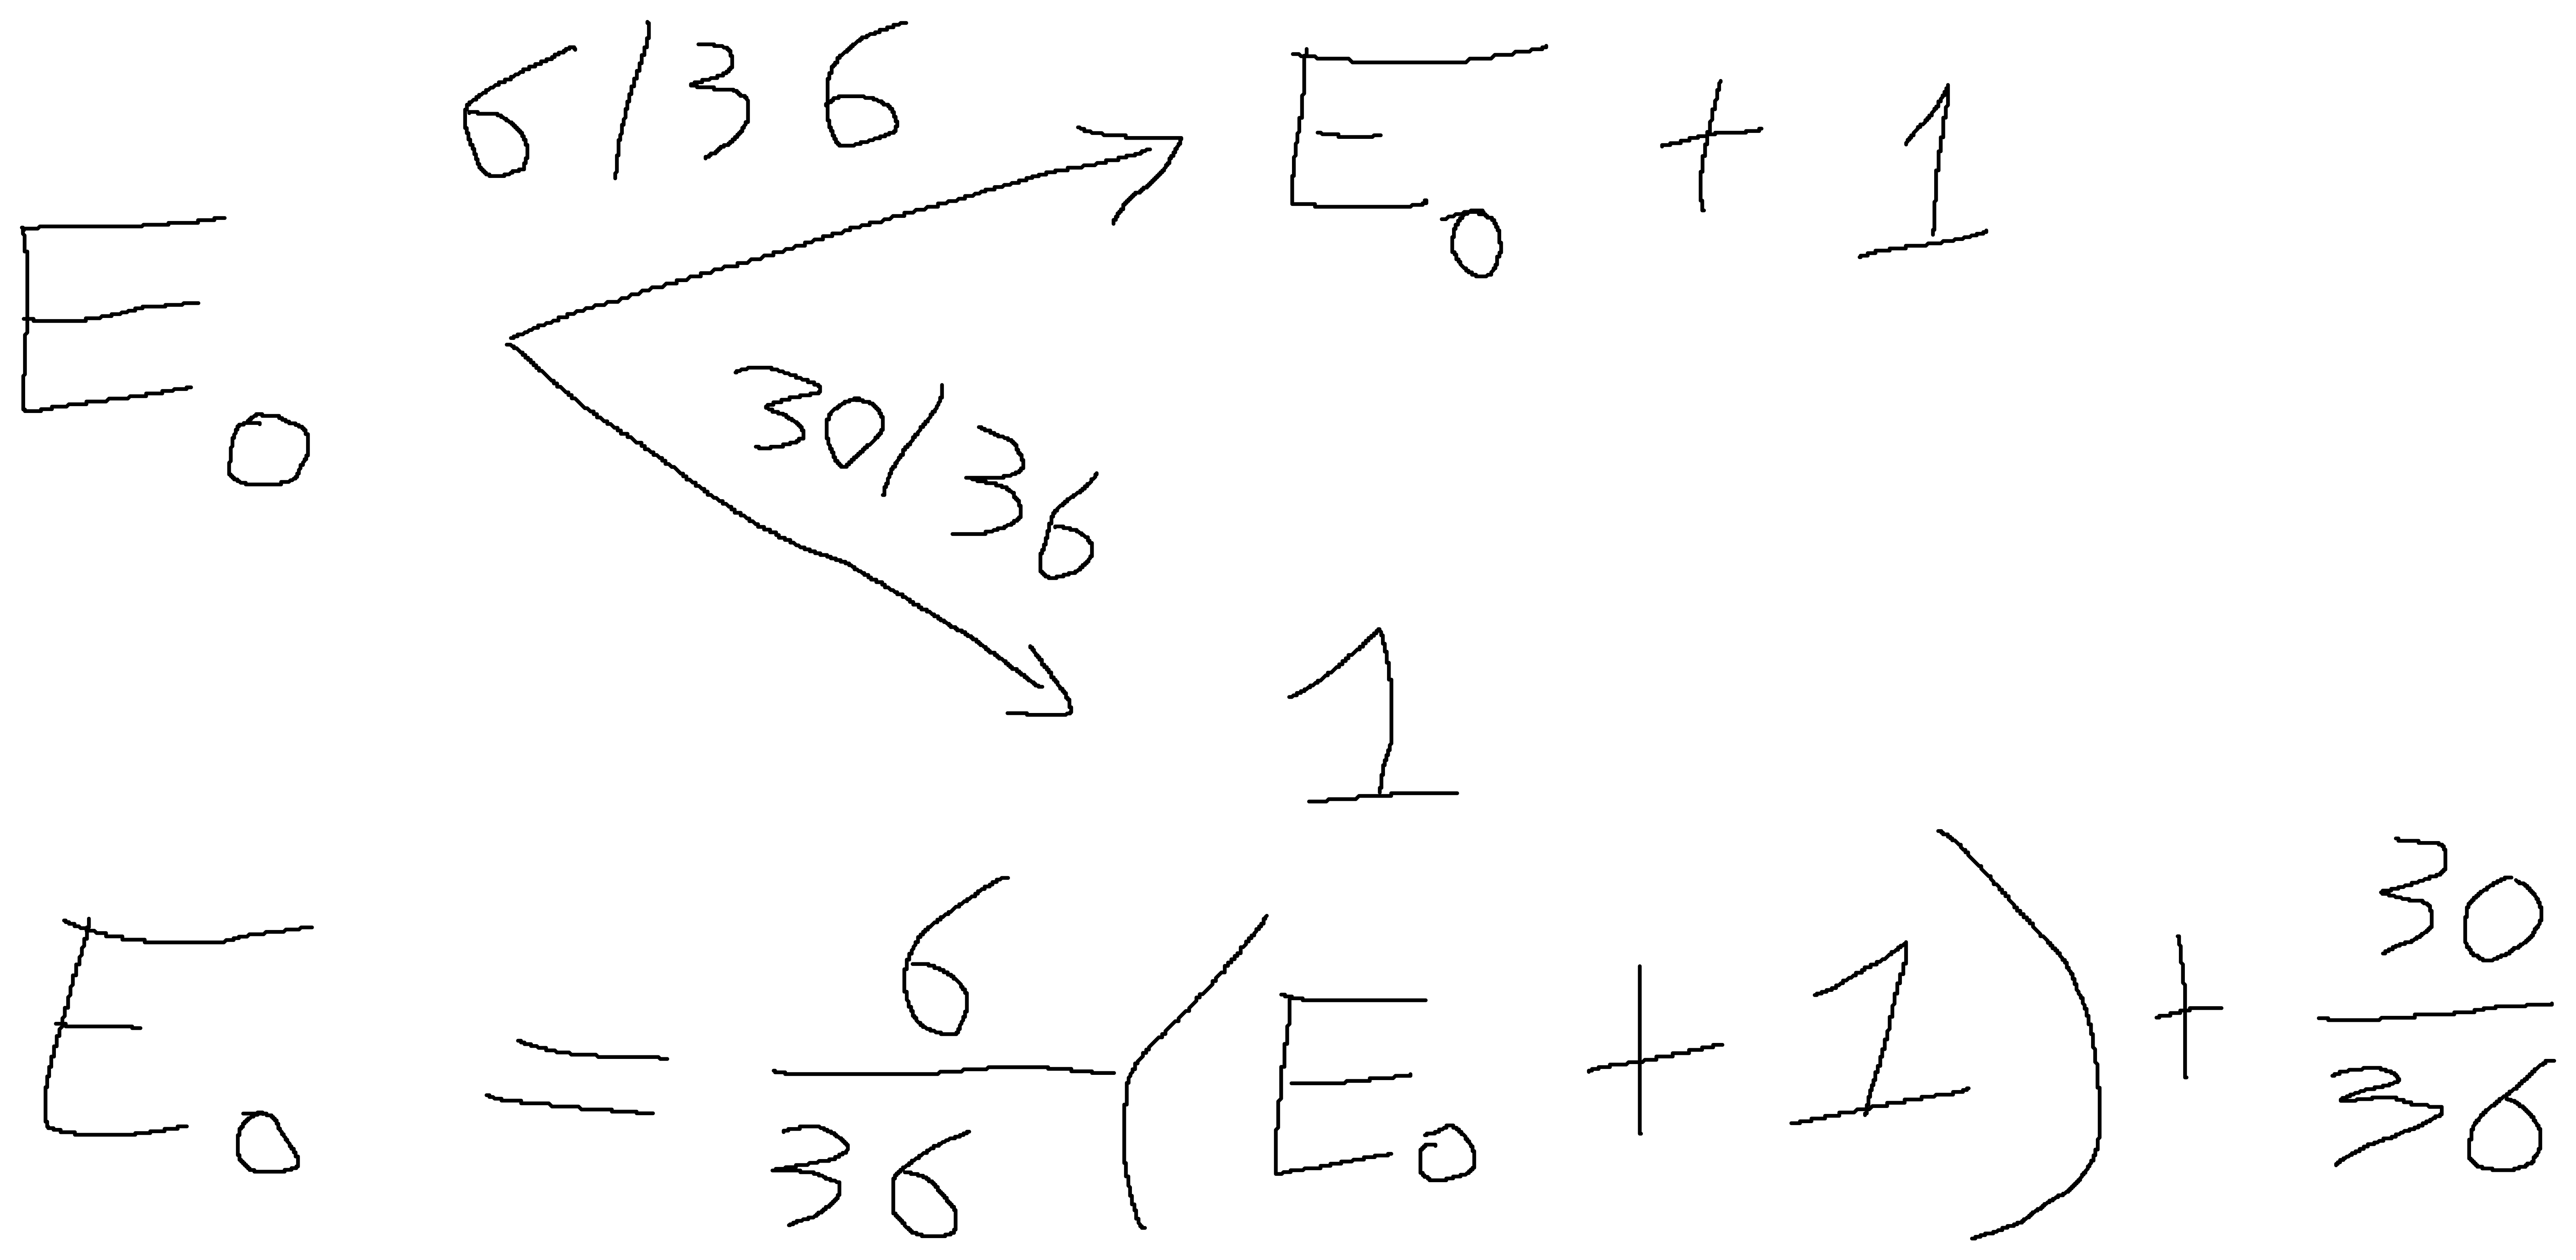 6/36 E₀ + 1
E₀
30/36
1
E₀ = 6/36 (E₀ + 1) + 30/36